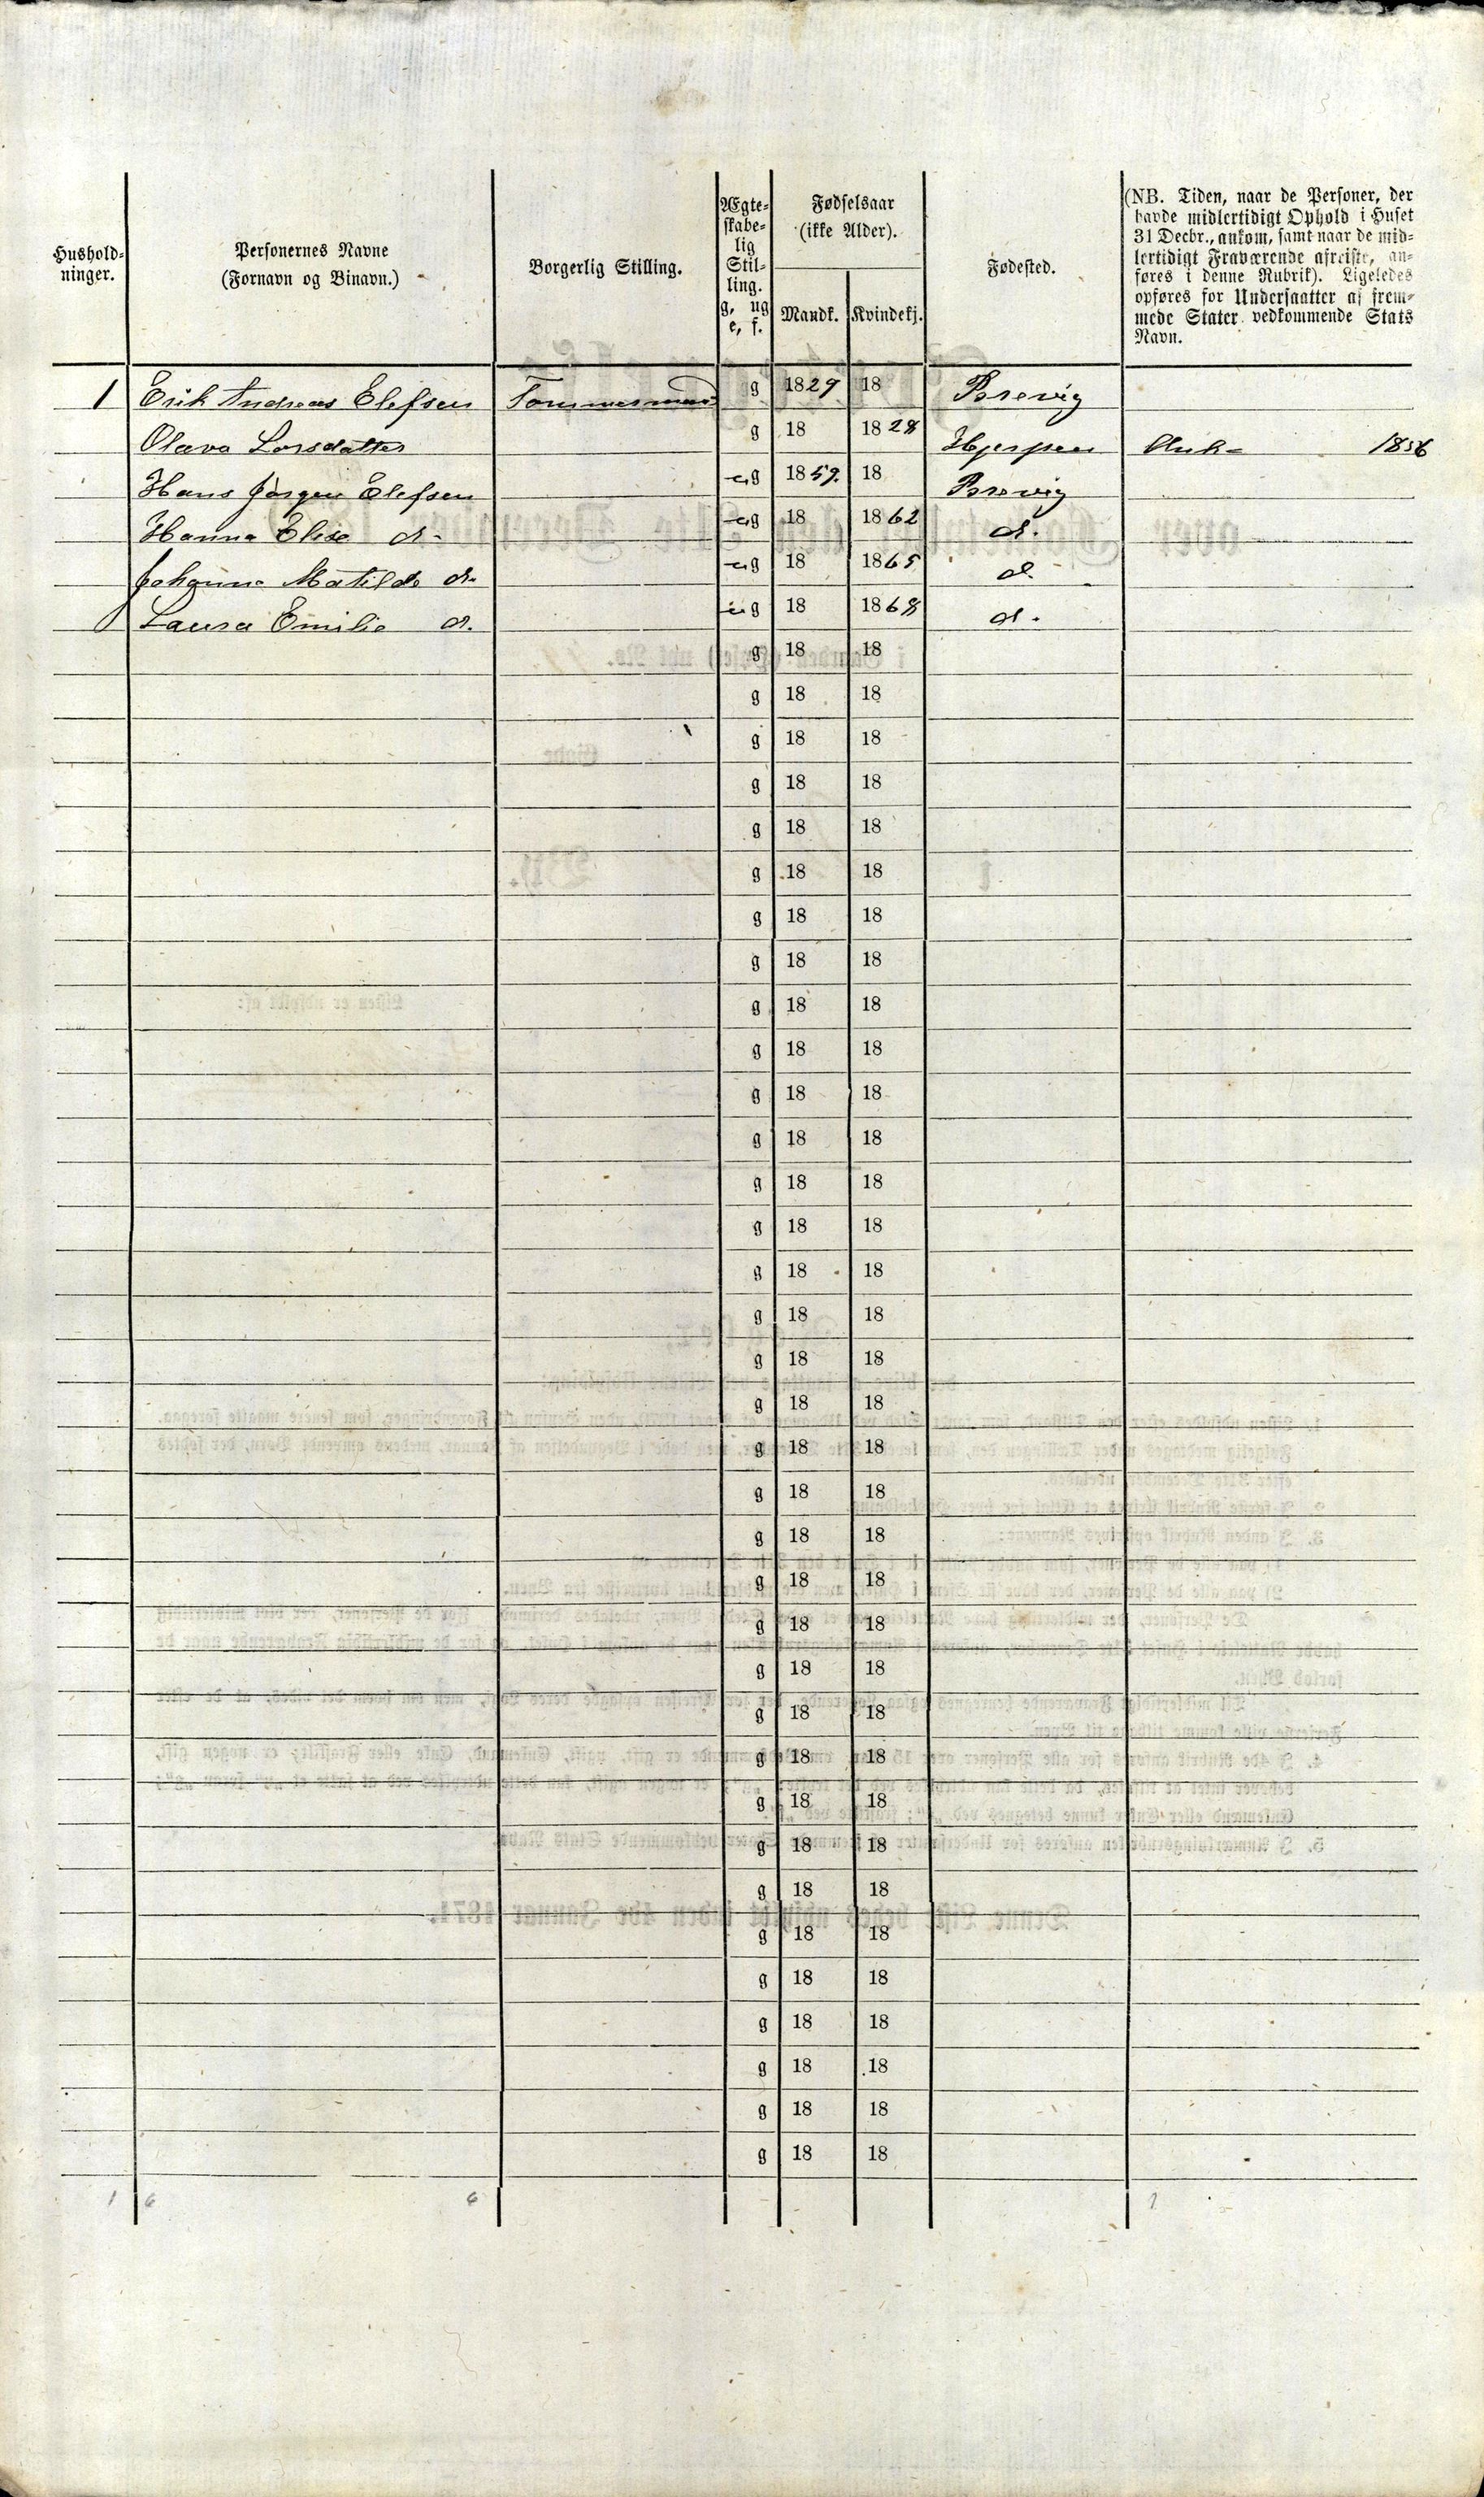 Hushold-
ninger.
Personernes Navne
(Fornavn og Binavn.)
Borgerlig Stilling.
Ægte-
skabe-
lig
Stil-
ling.
g, ug
e, f.
Fødselsaar
(ikke Alder).
Mandk. Kvindekj.
Fødested.
(NB. Tiden, naar de Personer, der
havde midlertidigt Ophold i Huset
31 Decbr., ankom, samt naar de mid-
lertidigt Fraværende afreiste, an-
føres i denne Rubrik). Ligeledes
opføres for Undersaatter af frem-
mede Stater vedkommende Stats
Navn.
1 Erik Andreas Elefsen Tømmermand g 1829 18 Brevig
Olava Larsdatter g 18 1828 Hjerpen Ank- 1856
Hans Jørgen Elefsen ug 1859. 18 Brevig
Hanna Elise d- ug 18 1862 d.
Johanne Matilde d. ug 18 1865 d.
Laura Emilie d. ug 18 1868 d.
g 18 18
g 18 18
g 18 18
g 18 18
g 18 18
g 18 18
g 18 18
g 18 18
g 18 18
g 18 18
g 18 18
g 18 18
g 18 18
g 18 18
g 18 18
g 18 18
g 18 18
g 18 18
g 18 18
g 18 18
g 18 18
g 18 18
g 18 18
g 18 18
g 18 18
g 18 18
g 18 18
g 18 18
g 18 18
g 18 18
g 18 18
g 18 18
g 18 18
g 18 18
g 18 18
1 6 6 1